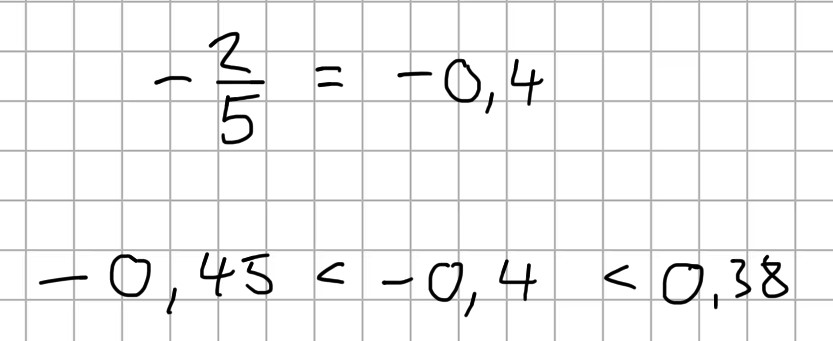 -2/5 = -0,4
-0,45 < -0,4 < 0,38